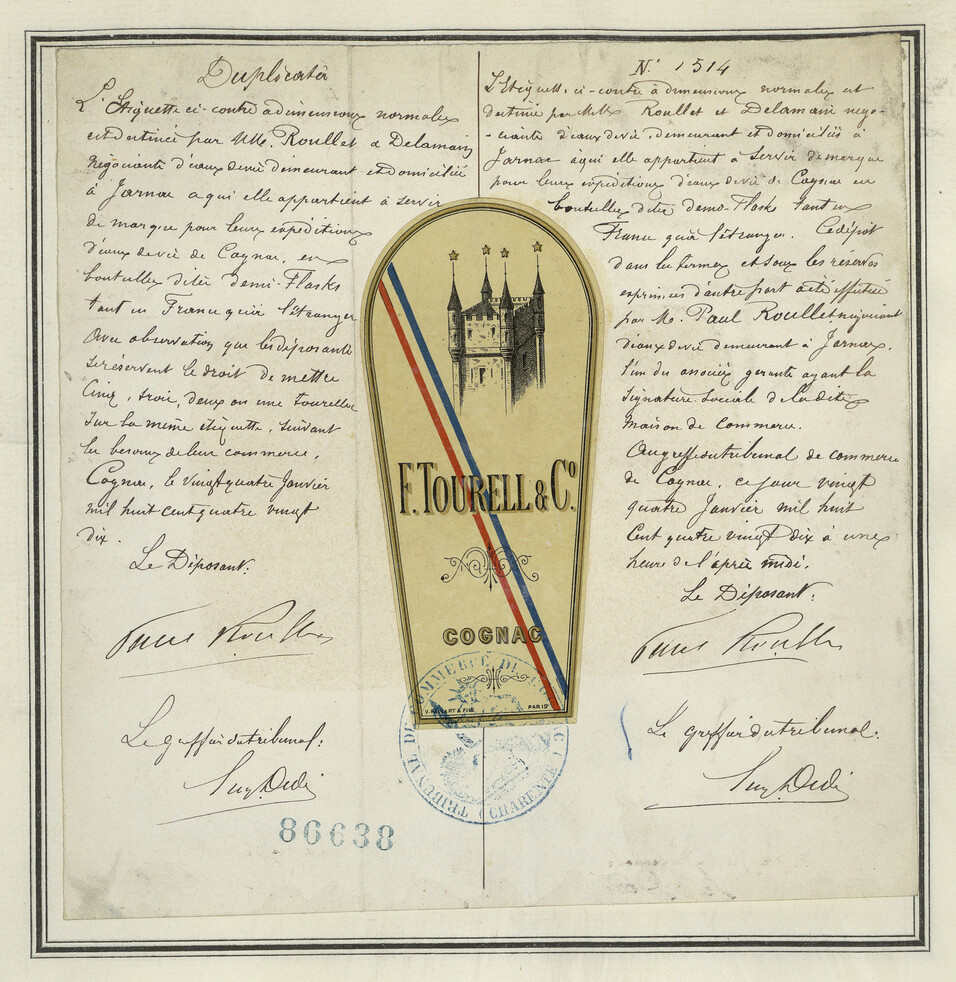 Duplicata
L'Etiquette ci-contre à dimensions normales
est destinée par MM. Roullet & Delamain
négociants d'eaux de vie demeurant et domiciliés
à Jarnac à qui elle appartient à servir
de marque pour leurs expéditions
d'eaux de vie de Cognac, en
bouteilles dites demi-Flasks
tant en France qu'à l'étranger
avec observation que les déposants
se réservent le droit de mettre
cinq, trois, deux ou une tourelles
sur la même étiquette, suivant
les besoins de leur commerce.
Cognac, le vingt quatre Janvier
mil huit cent quatre vingt
dix.
Le Déposant:
Paul Roullet
Le greffier du tribunal:
86638
N° 1514
L'Etiquette ci-contre à dimensions normales est
destinée par MM. Roullet et Delamain négo-
-ciants d'eaux de vie demeurant et domiciliés à
Jarnac à qui elle appartient à servir de marque
pour leurs expéditions d'eaux de vie de Cognac en
bouteilles dites demi-Flasks tant en
France qu'à l'étranger. Ce dépôt
dans les termes et sous les réserves
exprimées d'autre part a été effectué
par M. Paul Roullet négociant
d'eaux de vie demeurant à Jarnac,
l'un des associés gérants ayant la
signature sociale de la dite
maison de commerce.
Au greffe du tribunal de commerce
de Cognac, ce jour vingt
quatre Janvier mil huit
cent quatre vingt dix à une
heure de l'après midi.
Le Déposant:
Paul Roullet
Le greffier du tribunal:
F. TOURELL & Cº.
COGNAC
& FILS
PARIS
TRIBUNAL DE COMMERCE DE COGNAC
CHARENTE